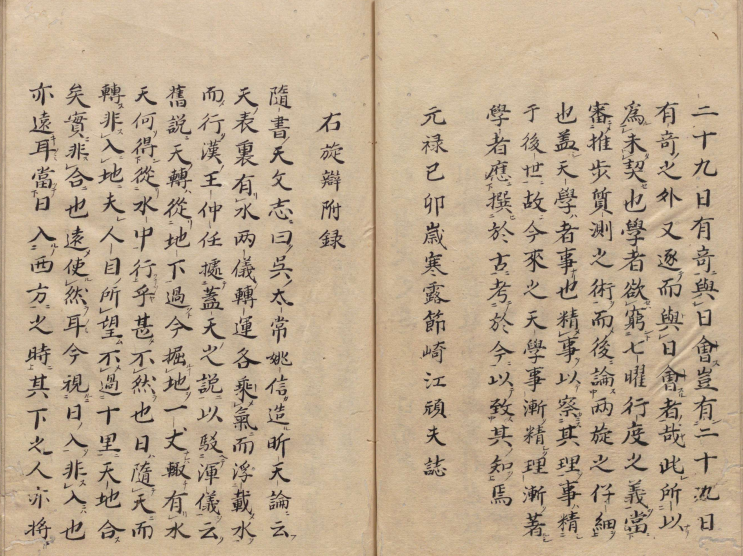 二十九日有奇與日會豈有二十九日
有奇之外又逐而與日會者哉此所以
為未契也學者欲窮七曜行度之義當
審推步質測之術而後論兩旋之仔細
也盖天學者事也精事以察其理事精
于後世故今來之天學事漸精理漸著
學者應撰於古考於今以致其知焉
元禄己卯歳寒露節崎江頑夫誌
右旋辯附録
隨書天文志曰吳太常姚信造昕天論云
天表裏有水兩儀轉運各乘氣而浮載水
而行漢王仲任據蓋天之説以駁渾儀云
舊説天轉從地下過今掘地一丈輙有水
天何得從水中行乎甚不然也日隨天而
轉非入地夫人目所望不過十里天地合
矣實非合也遠使然耳今視日入非入也
亦遠耳當日入西方之時其下之人亦將